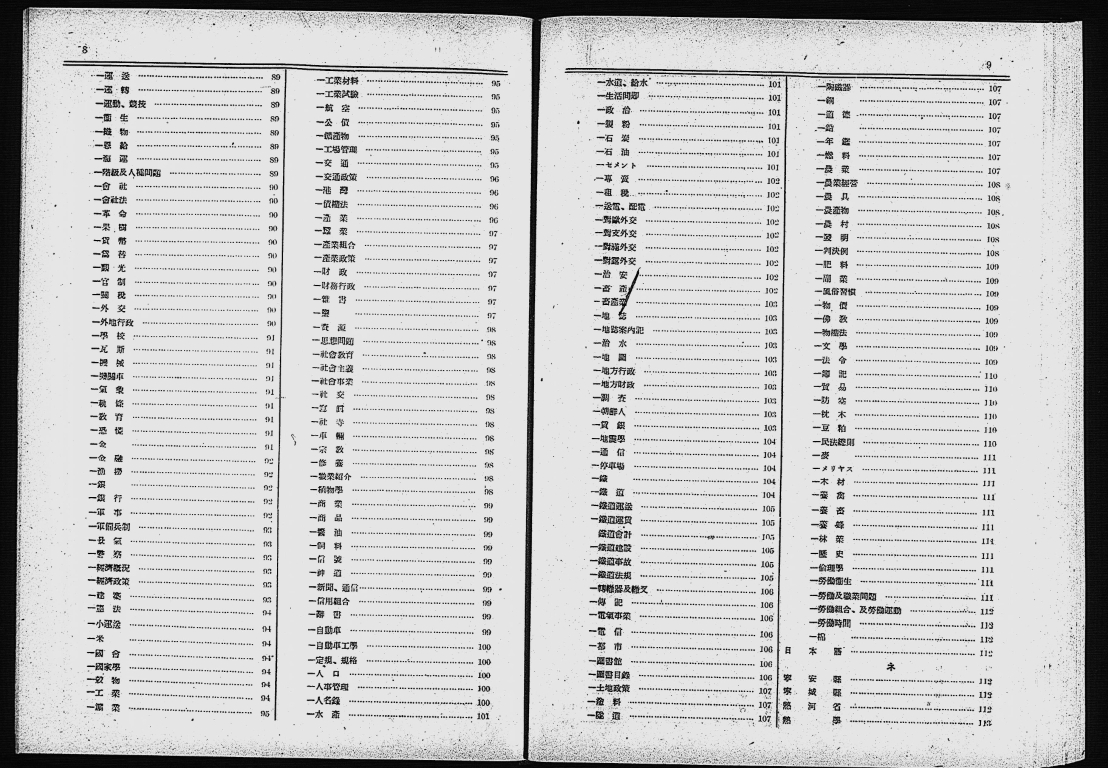 8
一運 送 89
一運 轉 89
一運動、競技 89
一衞 生 89
一織 物 89
一恩 給 89
一海 運 89
一階級及人種問題 89
一會 社 90
一會社法 90
一革 命 90
一果 樹 90
一貨 幣 90
一爲 替 90
一觀 光 90
一官 制 90
一關 稅 90
一外 交 90
一外地行政 90
一學 校 91
一瓦 斯 91
一機 械 91
一機關車 91
一氣 象 91
一軌 條 91
一敎 育 91
一恐 慌 91
一金 91
一金 融 92
一漁 撈 92
一銀 92
一銀 行 92
一軍 事 92
一軍備兵制 93
一景 氣 93
一警 察 93
一經濟槪況 93
一經濟政策 93
一建 築 93
一憲 法 94
一小運送 94
一米 94
一國 會 94
一國家學 94
一穀 物 94
一工 業 94
一鑛 業 95
一工業材料 95
一工業試驗 95
一航 空 95
一公 債 95
一鑛產物 95
一工場管理 95
一交 通 95
一交通政策 96
一港 灣 96
一債權法 96
一產 業 96
一蠶 業 97
一產業組合 97
一產業政策 97
一財 政 97
一財務行政 97
一雜 書 97
一鹽 97
一資 源 98
一思想問題 98
一社會敎育 98
一社會主義 98
一社會事業 98
一社 交 98
一寫 眞 98
一社 寺 98
一車 輛 98
一宗 敎 98
一修 養 98
一職業紹介 98
一植物學 98
一商 業 99
一商 品 99
一醬 油 99
一飼 料 99
一信 號 99
一神 道 99
一新聞、通信 99
一信用組合 99
一辭 書 99
一自動車 99
一自動車工學 100
一定規、規格 100
一人 口 100
一人事管理 100
一人名錄 100
一水 產 101
9
一水道、給水 101
一生活問題 101
一政 治 101
一製 粉 101
一石 炭 101
一石 油 101
一セメント 101
一專 賣 102
一租 稅 102
一送電、配電 102
一對歐外交 102
一對支外交 102
一對滿外交 102
一對露外交 102
一治 安 102
一畜 產 102
一畜產業 103
一地 誌 103
一地誌案內記 103
一治 水 103
一地 圖 103
一地方行政 103
一地方財政 103
一調 査 103
一朝鮮人 103
一賃 銀 103
一地震學 104
一通 信 104
一停車場 104
一鐵 104
一鐵 道 104
一鐵道運送 105
一鐵道運賃 105
鐵道會計 105
一鐵道建設 105
一鐵道事故 105
一鐵道法規 105
一轉轍器及轍叉 106
一傳 記 106
一電氣事業 106
一電 信 106
一都 市 106
一圖書館 106
一圖書目錄 106
一土地政策 107
一塗 料 107
一隧 道 107
一陶磁器 107
一銅 107
一道 德 107
一鉛 107
一年 鑑 107
一燃 料 107
一農 業 107
一農業經營 108
一農 具 108
一農產物 108
一農 村 108
一發 明 108
一判決例 108
一肥 料 109
一副 業 109
一風俗習慣 109
一物 價 109
一佛 敎 109
一物權法 109
一文 學 109
一法 令 109
一簿 記 110
一貿 易 110
一防 空 110
一枕 木 110
一豆 粕 110
一民法總則 110
一麥 111
一メリヤス 111
一木 材 111
一養 禽 111
一養 畜 111
一養 蜂 111
一林 業 111
一歷 史 111
一倫理學 111
一勞働衞生 111
一勞働及職業問題 111
一勞働組合、及勞働運動 112
一勞働時間 112
一棉 112
日 本 語 112
ネ
寧 安 縣 112
寧 城 縣 112
熱 河 省 112
熱 學 113